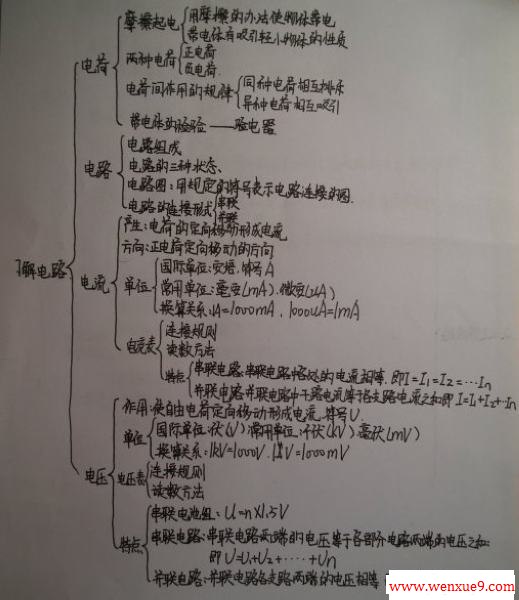 摩擦起电
用摩擦的办法使物体带电
带电体有吸引轻小物体的性质
电荷
两种电荷
正电荷
负电荷
电荷间作用的规律
同种电荷相互排斥
异种电荷相互吸引
带电体的检验——验电器
电路组成
电路
电路的三种状态、
电路图:用规定的符号表示电路连接的图.
电路的连接形式
串联
并联
了解电路
产生:电荷的定向移动形成电流
方向:正电荷定向移动的方向
电流
单位
国际单位:安培.符号A
常用单位:毫安(mA).微安(uA)
换算关系:1A=1000mA.1000uA=1mA
电流表
连接规则
读数方法
特点
串联电路:串联电路中各处的电流相等.即I=I1=I2=…In
并联电路:并联电路中干路电流等于各支路电流之和即I=I1+I2+…In
电压
作用:使自由电荷定向移动形成电流.符号U.
单位
国际单位:伏(V)常用单位:千伏(kV)毫伏(mV)
换算关系:1kV=1000V.1V=1000mV
电压表
连接规则
读数方法
特点
串联电池组:U=n×1.5V
串联电路:串联电路两端的电压等于各部分电路两端的电压之和:
即U=U1+U2+……+Un
并联电路:并联电路各支路两端的电压相等
www.wenxue9.com